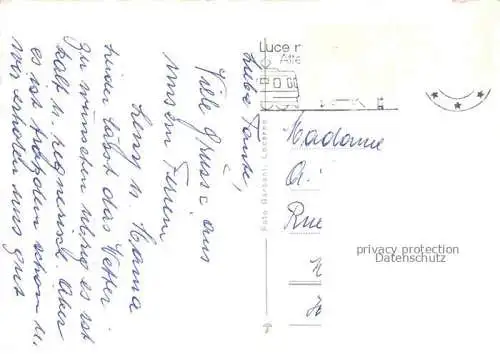 Liebe Tante,
Viele Grüsse aus
unsern Ferien
Leny u. Mama
Leider lässt das Wetter
zu wünschen übrig es ist
kalt u. regnerisch. Aber
es ist trotzdem schön u.
wir erholen uns gut
Foto Garbani, Locarno
Luce
Madame
Rue
privacy protection
Datenschutz